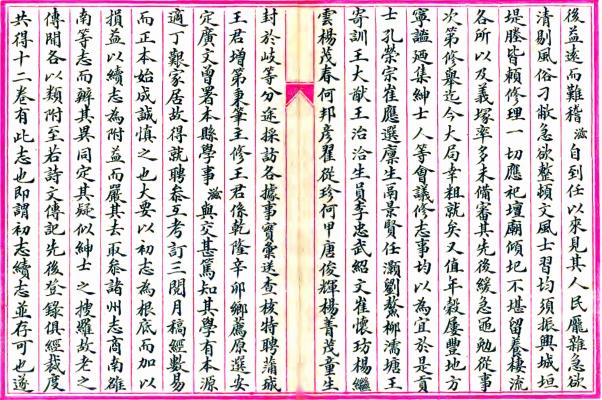 後益遠而難稽滋自到任以來見其人民龐雜急欲
清剔風俗刁敝急欲整頓文風士習均須振興城垣
堤塍皆頼修理一切應祀壇廟傾圯不堪留養棲流
各所以及義塚率多未備審其先後緩急黽勉從事
次第修舉迄今大局幸粗就矣又值年穀屢豐地方
寧謐廼集紳士人等會議修志事均以為宜於是貢
士孔榮宗崔應選廩生鬲景賢任灝劉鰲柳濡塘王
寄訓王大猷王治洽生員李忠武紹文崔懷玏楊繼
雲楊茂春何邦彦翟從珍何甲唐俊輝楊菁茂童生
封於岐等分途採訪各據事實彙送查核特聘蒲城
王君增第秉筆主修王君係乾隆辛卯鄉薦原選安
定廣文曾署本縣學事滋與交甚篤知其學有本源
適丁艱家居故得就聘叅互考訂三閱月稿經數易
而正本始成誠慎之也大要以初志為根底而加以
損益以續志為附益而嚴其去取叅諸州志商南雒
南等志而辨其異同定其疑似紳士之搜羅故老之
傳聞各以類附至若詩文傳記先後登錄俱經裁度
共得十二卷有此志也即謂初志續志並存可也遂